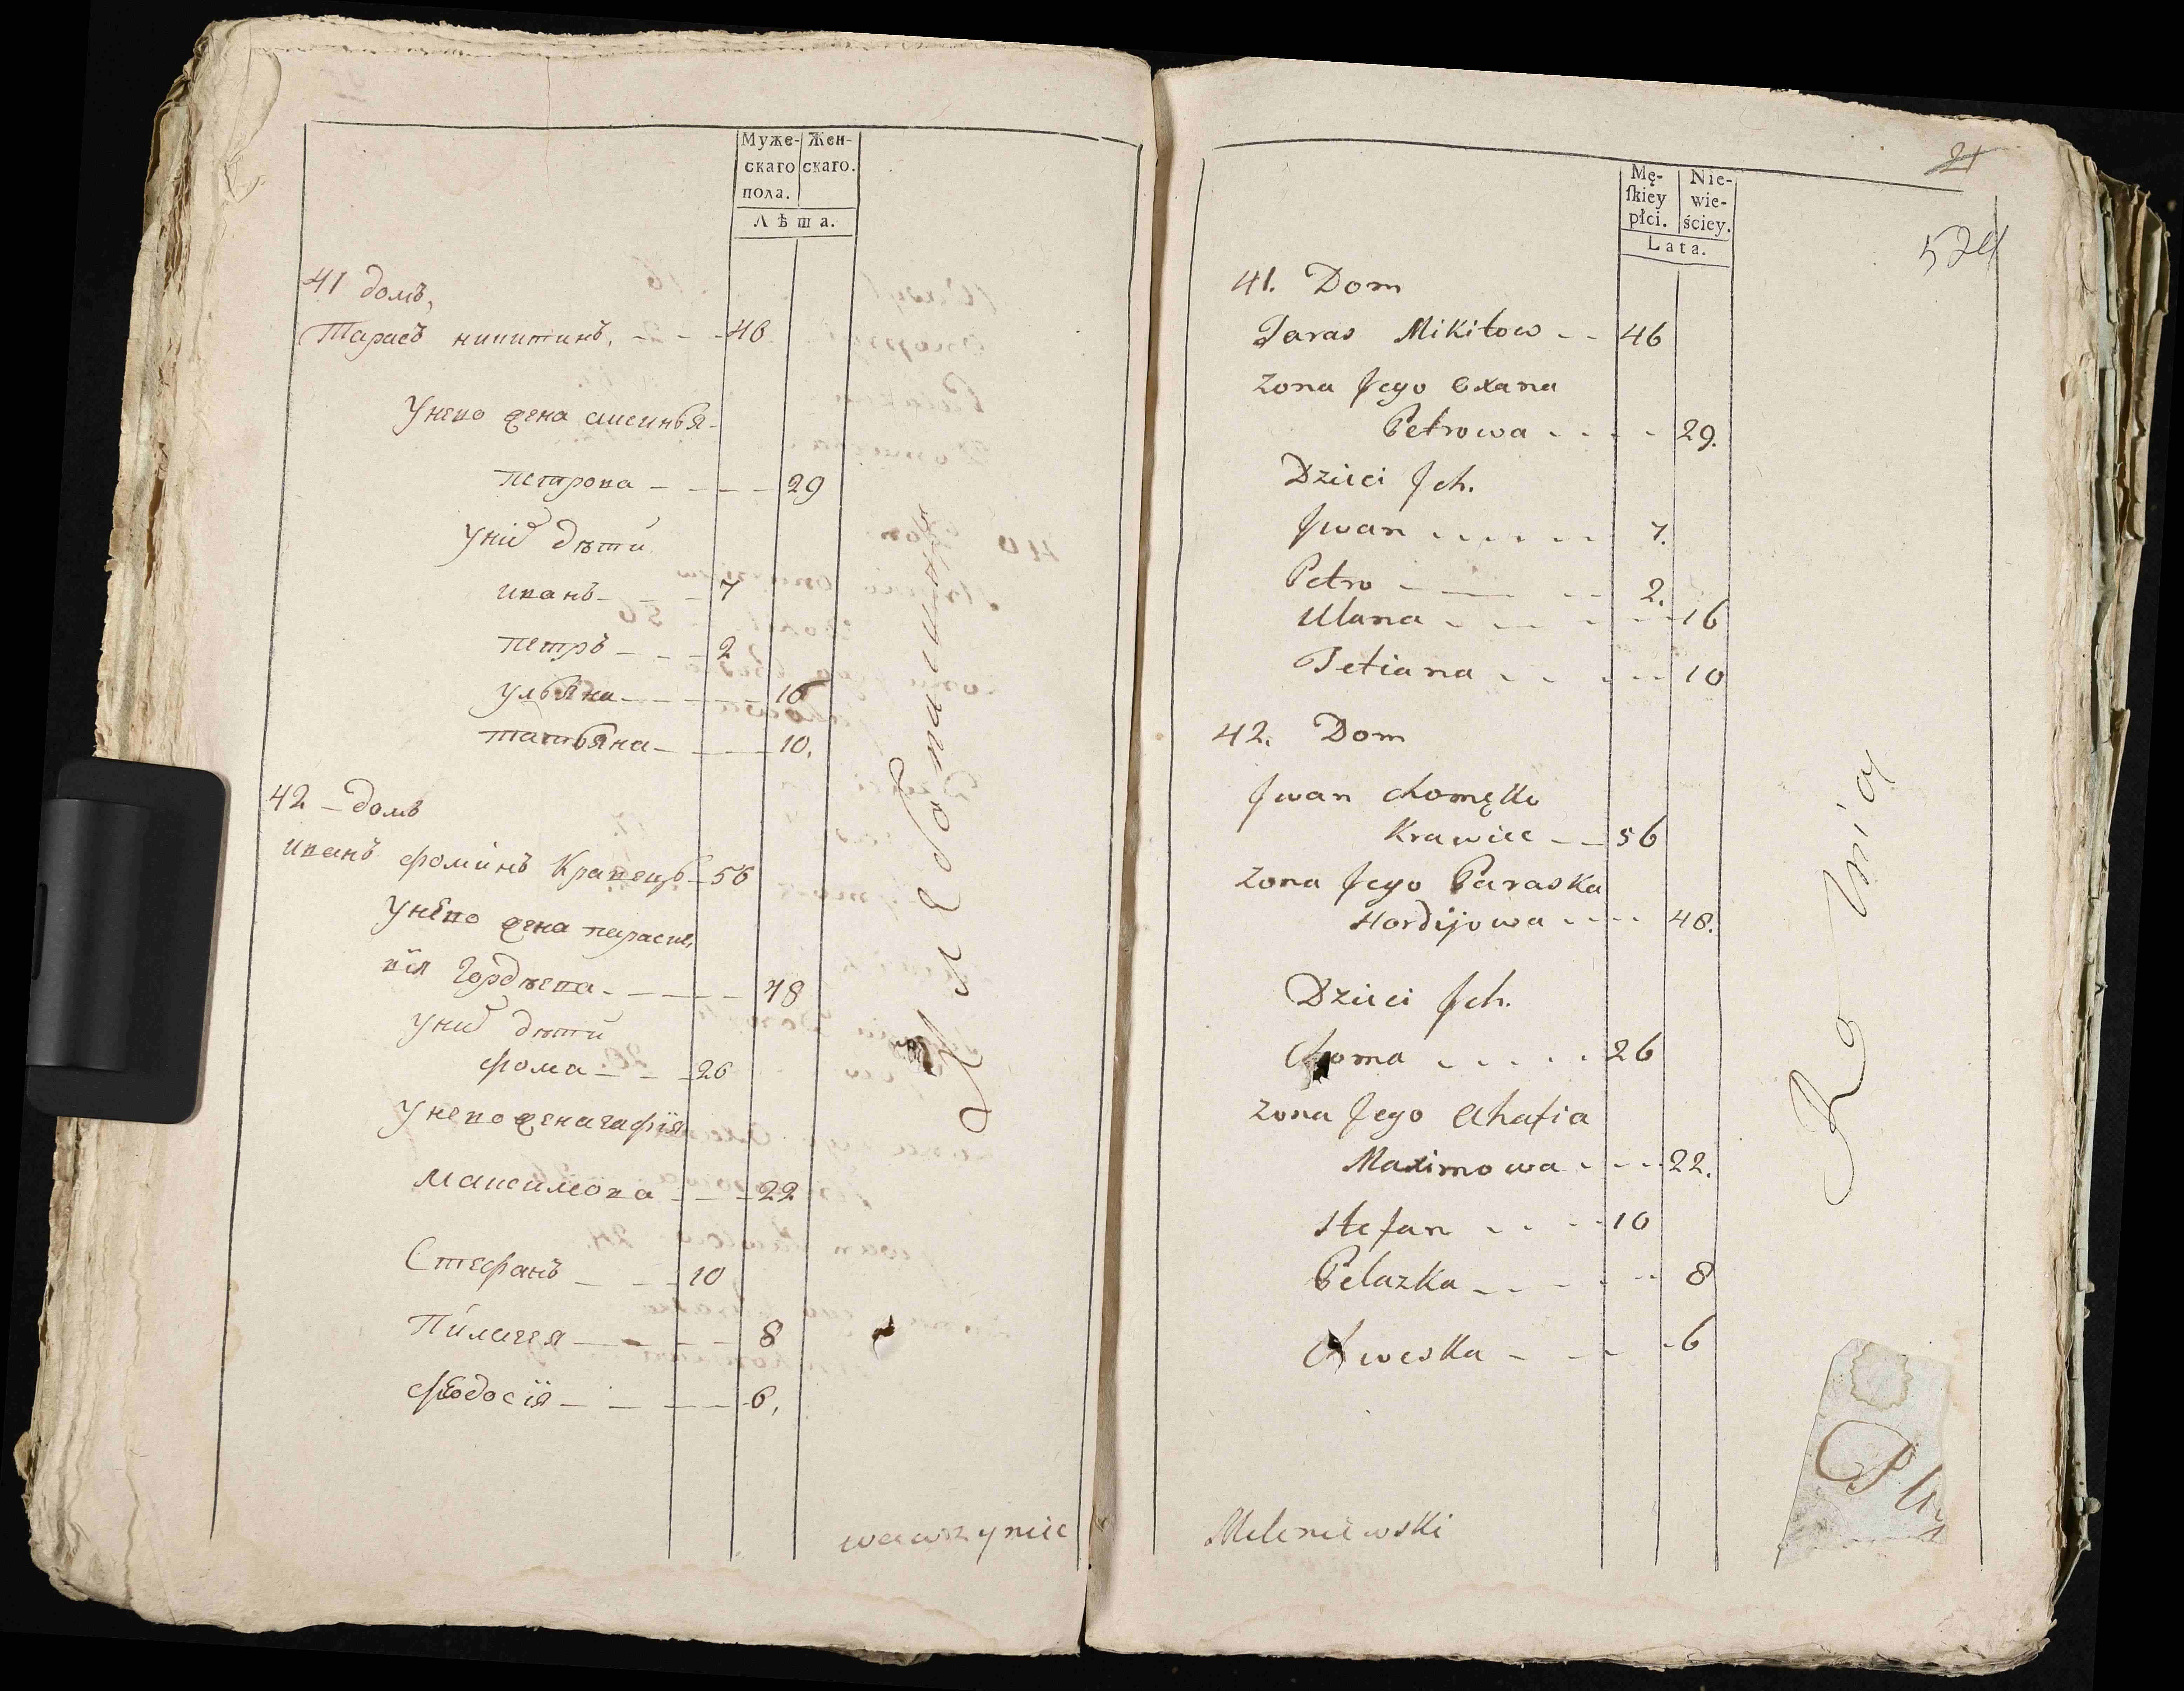 Муже-
скаго
пола.
Жен-
скаго.
Лѣта.
41 домъ,
Тарасъ никитинъ, - - - 46
Унего жена аксинья -
петрова - - - - 29
Уних дѣти
иванъ - - - 7
петръ - - - 2
ульяна - - - - 16
татьяна - - - - 10,
42 - домъ
иванъ фоминъ Кравецъ - 56
Унего жена параске
вія Гордѣева - - - - 48
Уних дѣти
фома - - - 26
Унего жена гафія
максимова - - - 22
Стефанъ - - - 10
Пилагея - - - - 8
феодосія - - - - 6,
wawrzyniec
21
524
Mę-
ſkiey
płci.
Nie-
wie-
ściey.
Lata.
41. Dom
Taras Mikitow - - 46
Zona Jego Oxana
Petrowa - - - - 29.
Dzieci Jch.
Jwan - - - - - 7.
Petro - - - - 2.
Ulana - - - - - 16
Tetiana - - - - - 10
42. Dom
Jwan Chomęko
Krawiec - - 56
Zona Jego Paraska
Hordijowa - - - - 48.
Dzieci Jch.
Choma - - - - - 26
Zona Jego Ahafia
Maximowa - - - 22.
Stefan - - - - 10
Pelazka - - - - - 8
Chweska - - - - 6
Meleniewski